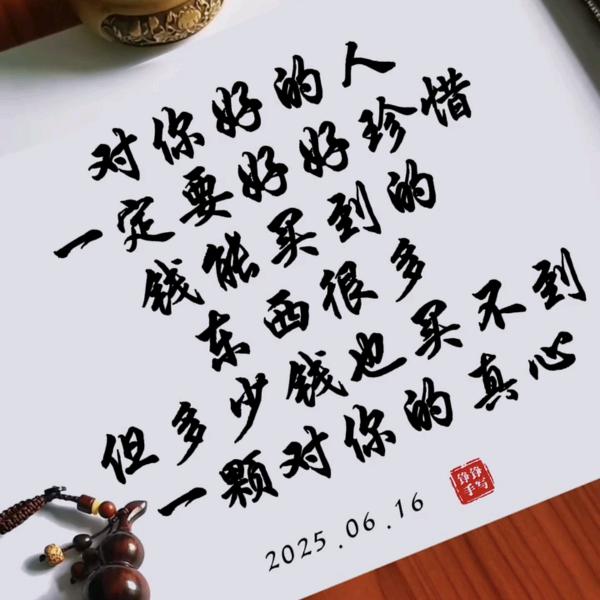 对你好的人
一定要好好珍惜
钱能买到的
东西很多
但多少钱也买不到
一颗对你的真心
铮铮
手写
2025.06.16